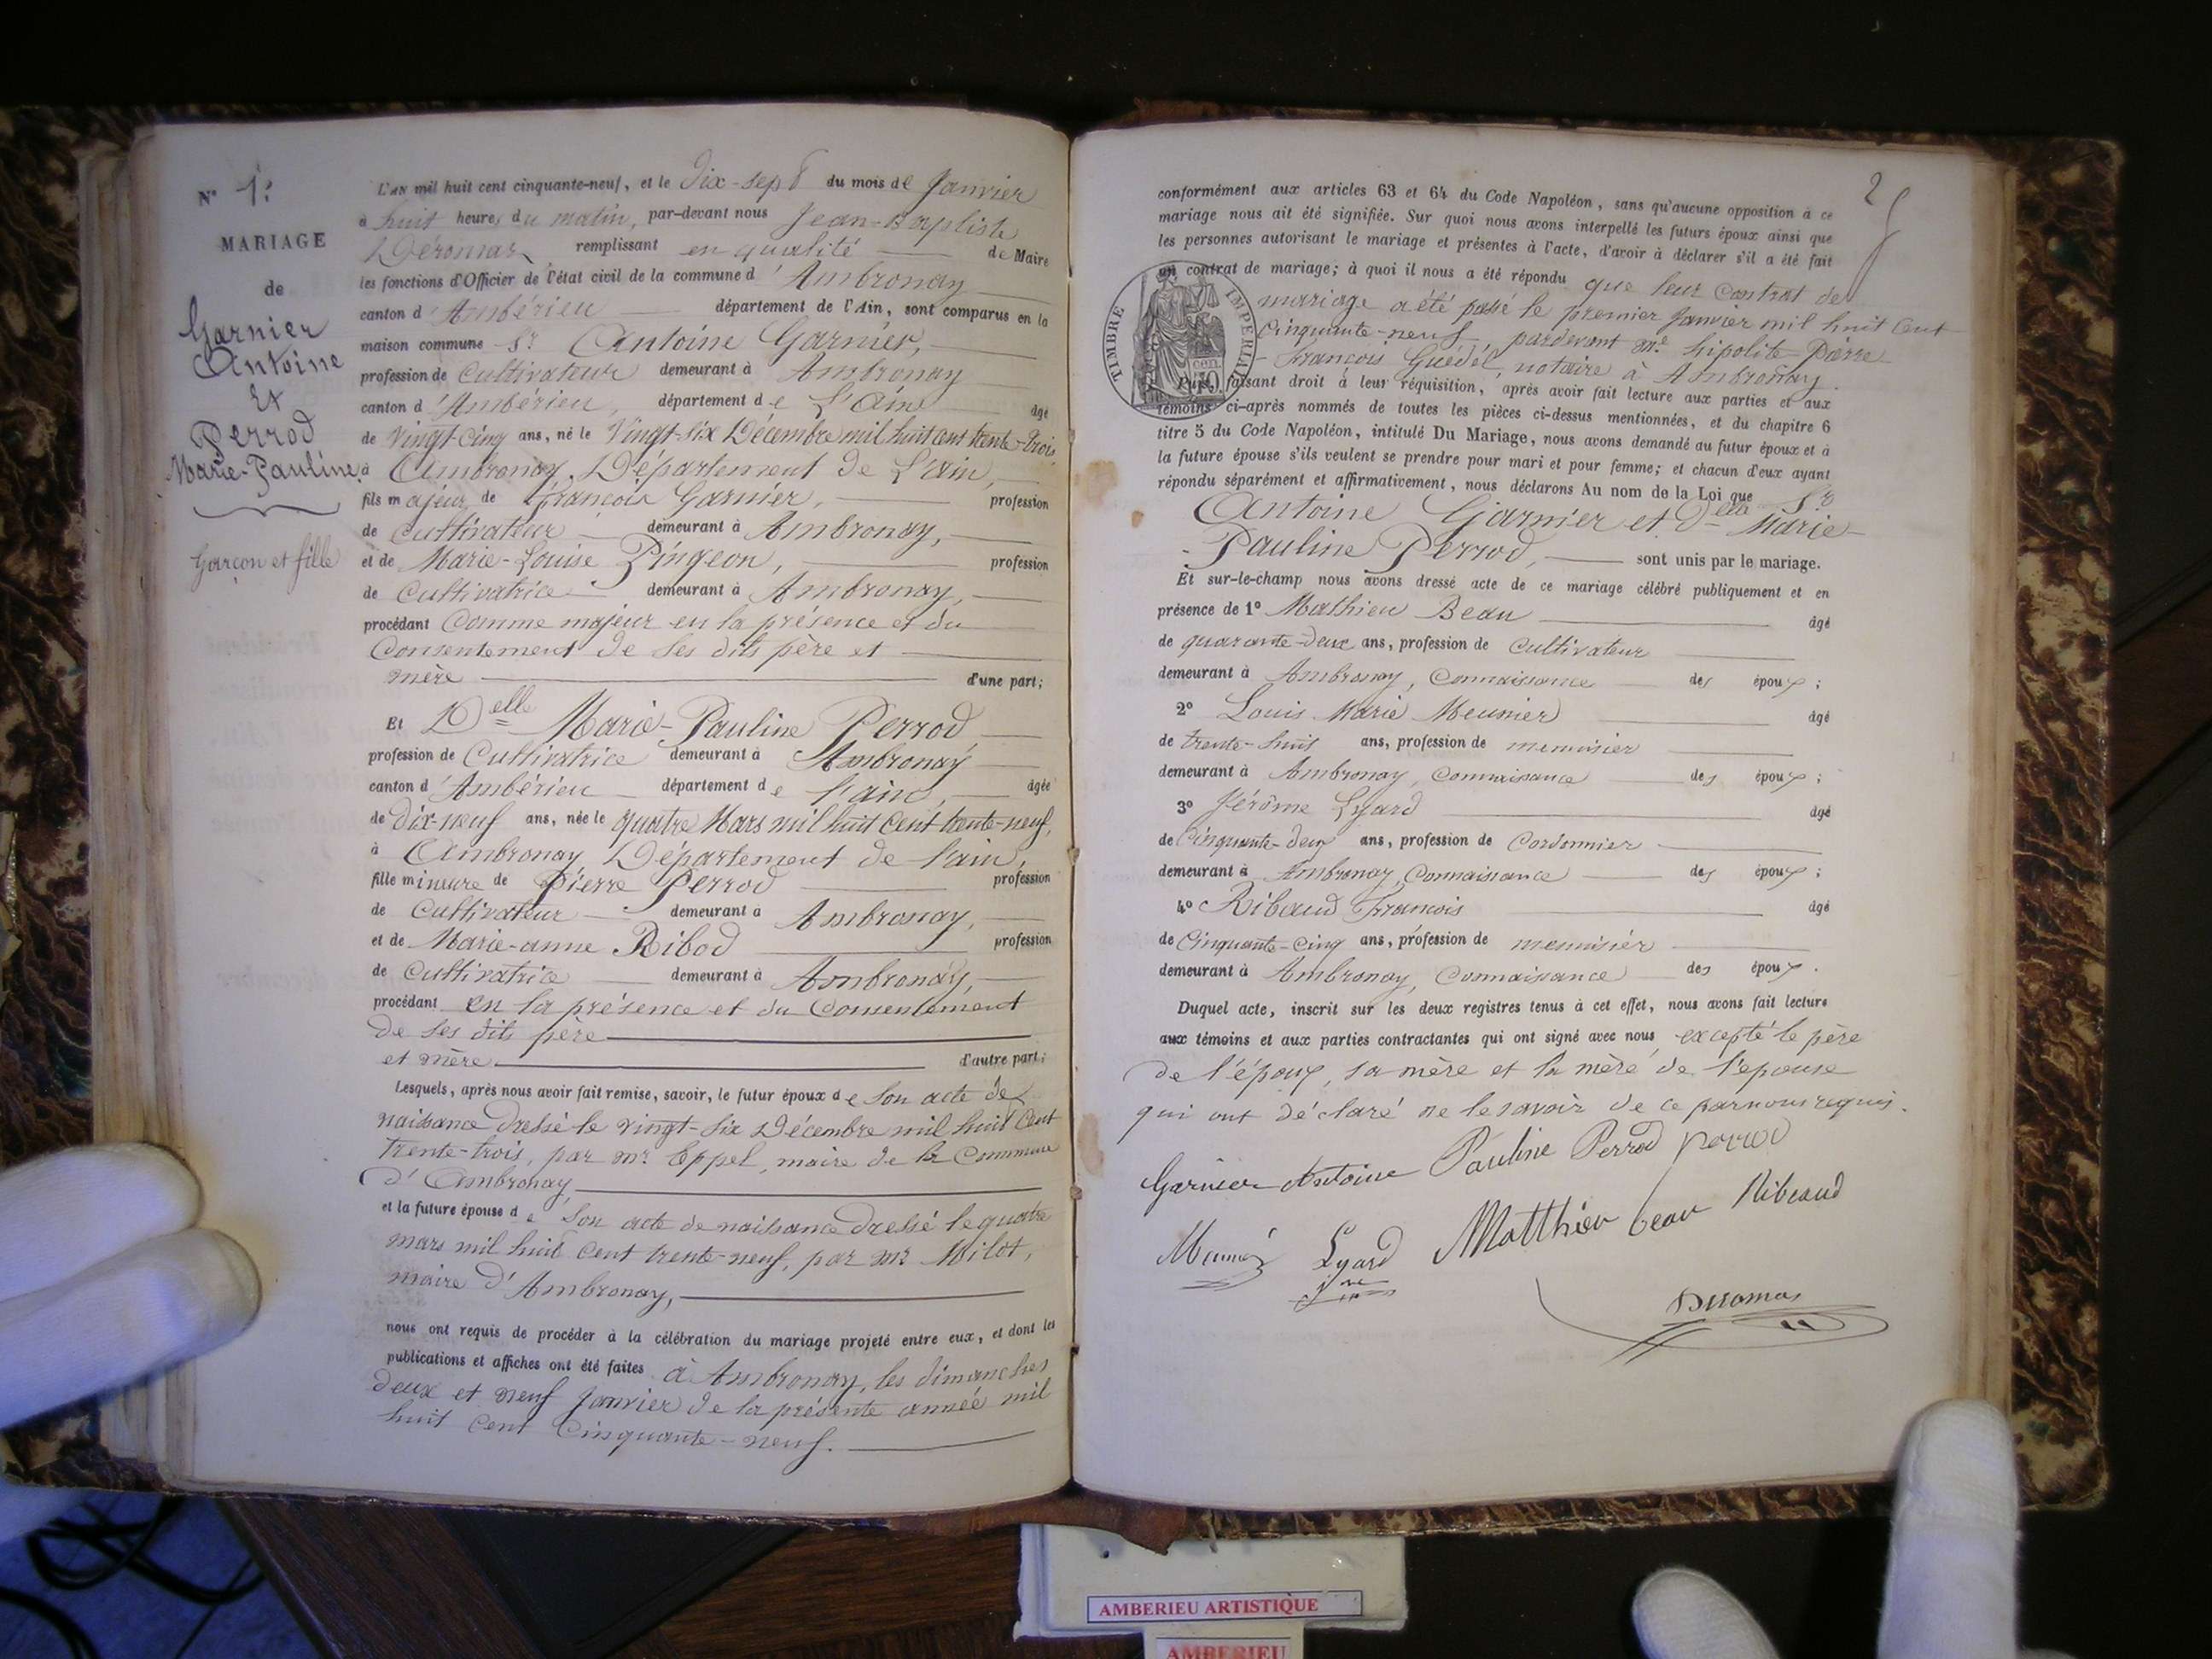 N° 1.
MARIAGE
de
Garnier
Antoine
Et
Perrod
Marie-Pauline
Garçon et fille
L'AN mil huit cent cinquante-neuf, et le dix-sept du mois de Janvier
à huit heures du matin, par-devant nous Jean-Baptiste
Déromas remplissant en qualité de Maire
les fonctions d'Officier de l'état civil de la commune d'Ambronay
canton d'Ambérieu département de l'Ain, sont comparus en la
maison commune Sr Antoine Garnier,
profession de Cultivateur demeurant à Ambronay
canton d'Ambérieu, département de L'Ain âgé
de Vingt-Cinq ans, né le Vingt-six Décembre mil huit cent trente-trois
à Ambronay, Département de L'ain,
fils majeur de François Garnier, profession
de Cultivateur demeurant à Ambronay,
et de Marie-Louise Pingeon, profession
de Cultivatrice demeurant à Ambronay,
procédant Comme majeur en la présence et du
Consentement de ses dits père et
mère d'une part;
Et Delle Marie-Pauline Perrod
profession de Cultivatrice demeurant à Ambronay
canton d'Ambérieu département de l'ain, âgée
de Dix-neuf ans, née le quatre Mars mil huit Cent trente-neuf,
à Ambronay Département de l'ain,
fille mineure de Pierre Perrod profession
de Cultivateur demeurant à Ambronay,
et de Marie-anne Ribod profession
de Cultivatrice demeurant à Ambronay,
procédant en la présence et du Consentement
De ses dits père
et mère d'autre part;
Lesquels, après nous avoir fait remise, savoir, le futur époux de Son acte de
naissance dressé le vingt-six Décembre mil huit Cent
trente-trois, par mr. Eppel, maire de la Commune
d'Ambronay,
et la future épouse de son acte de naissance dressé le quatre
mars mil huit Cent trente-neuf, par mr Milot,
maire d'Ambronay,
nous ont requis de procéder à la célébration du mariage projeté entre eux, et dont les
publications et affiches ont été faites à Ambronay, les dimanches
deux et neuf Janvier de la présente année mil
huit cent Cinquante-neuf.
2
conformément aux articles 63 et 64 du Code Napoléon, sans qu'aucune opposition à ce
mariage nous ait été signifiée. Sur quoi nous avons interpellé les futurs époux ainsi que
les personnes autorisant le mariage et présentes à l'acte, d'avoir à déclarer s'il a été fait
un contrat de mariage; à quoi il nous a été répondu que leur Contrat de
mariage a été passé le premier Janvier mil huit Cent
Cinquante-neuf pardevant me. hipolite-Pierre
-François Guédél, notaire à Ambronay.
TIMBRE IMPERIAL
50 cen
Puis, faisant droit à leur réquisition, après avoir fait lecture aux parties et aux
témoins ci-après nommés de toutes les pièces ci-dessus mentionnées, et du chapitre 6
titre 5 du Code Napoléon, intitulé Du Mariage, nous avons demandé au futur époux et à
la future épouse s'ils veulent se prendre pour mari et pour femme; et chacun d'eux ayant
répondu séparément et affirmativement, nous déclarons Au nom de la Loi que Sr
Antoine Garnier et Delle Marie-
-Pauline Perrod, sont unis par le mariage.
Et sur-le-champ nous avons dressé acte de ce mariage célébré publiquement et en
présence de 1° Mathieu Beau âgé
de quarante-deux ans, profession de Cultivateur
demeurant à Ambronay, Connaissance des époux;
2° Louis Marie Meunier âgé
de trente-huit ans, profession de menuisier
demeurant à Ambronay, Connaissance des époux;
3° Jérôme Lyard âgé
de Cinquante-deux ans, profession de Cordonnier
demeurant à Ambronay, Connaissance des époux;
4° Ribaud François âgé
de Cinquante-Cinq ans, profession de menuisier
demeurant à Ambronay, Connaissance des époux.
Duquel acte, inscrit sur les deux registres tenus à cet effet, nous avons fait lecture
aux témoins et aux parties contractantes qui ont signé avec nous, excepté le père
de l'époux, sa mère et la mère de l'épouse
qui ont déclaré ne le savoir de ce par nous requis.
Garnier Antoine Pauline Perrod perrod
Meunié Lyard Matthieu beau Ribeaud
jme
Deromas
AMBERIEU ARTISTIQUE
AMBERIEU